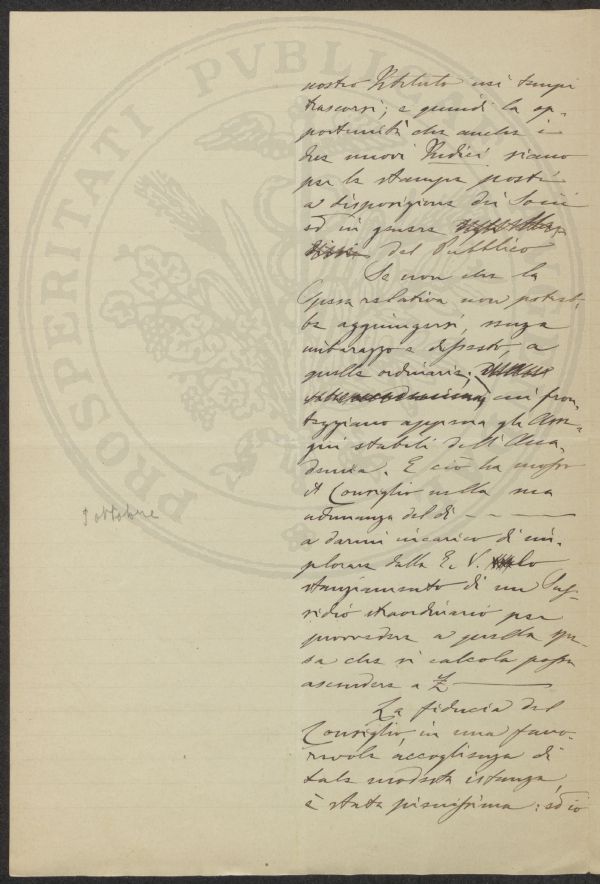 PROSPERITATI PVBLICAE
nostro Istituto nei tempi
trascorsi; e quindi la op-
portunità che anche i
due nuovi Indici siano
per le stampe posti
a disposizione dei Socii
ed in genere
del Pubblico
Se non che la
spesa relativa non potreb-
be aggiungersi, senza
imbarazzo e dissesto, a
quelle ordinarie, cui fron-
teggiamo appena gli asse-
gni stabili dell'Acca-
demia. E ciò ha mosso
il Consiglio nella sua
adunanza del dì - - -
9 ottobre
a darmi incarico di im-
plorare dalla E. V. lo
stanziamento di un Sus-
sidio straordinario per
provvedere a quella spe-
sa che si calcola possa
ascendere a £
La fiducia del
Consiglio, in una favo-
revole accoglienza di
tale modesta istanza,
è stata pienissima: ed io